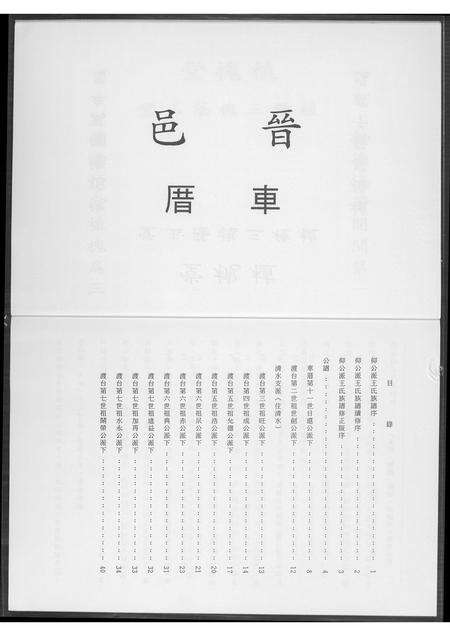 晉邑
車厝
目錄
仰公派王氏族譜序 1
仰公派王氏族譜續修序 2
仰公派王氏族譜修正版序 3
公譜 4
車厝第十一世日進公派下 8
渡台第二世祖世創公派下 12
清水支派（住清水）
渡台第三世祖旺公派下 13
渡台第四世祖成公派下 14
渡台第五世祖允德公派下 17
渡台第五世祖浩公派下 20
渡台第六世祖宗公派下 21
渡台第六世祖赤公派下 23
渡台第六世祖典公派下 31
渡台第七世祖建益公派下 32
渡台第七世祖加再公派下 33
渡台第七世祖水永公派下 34
渡台第七世祖闊嘴公派下 40